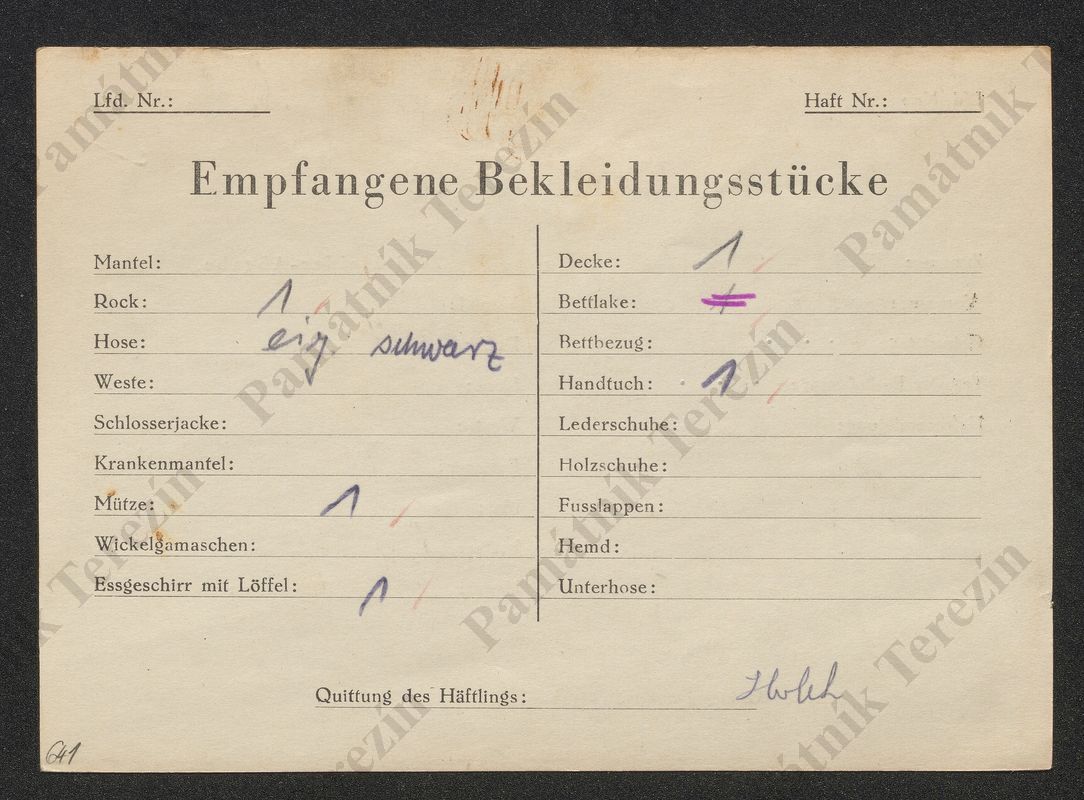 Lfd. Nr.:
Haft Nr.:
Empfangene Bekleidungsstücke
Mantel:
Rock: 1
Hose: eig schwarz
Weste:
Schlosserjacke:
Krankenmantel:
Mütze: 1
Wickelgamaschen:
Essgeschirr mit Löffel: 1
Decke: 1
Bettlake: 1
Bettbezug:
Handtuch: 1
Lederschuhe:
Holzschuhe:
Fusslappen:
Hemd:
Unterhose:
Quittung des Häftlings:
641
Památník Terezín